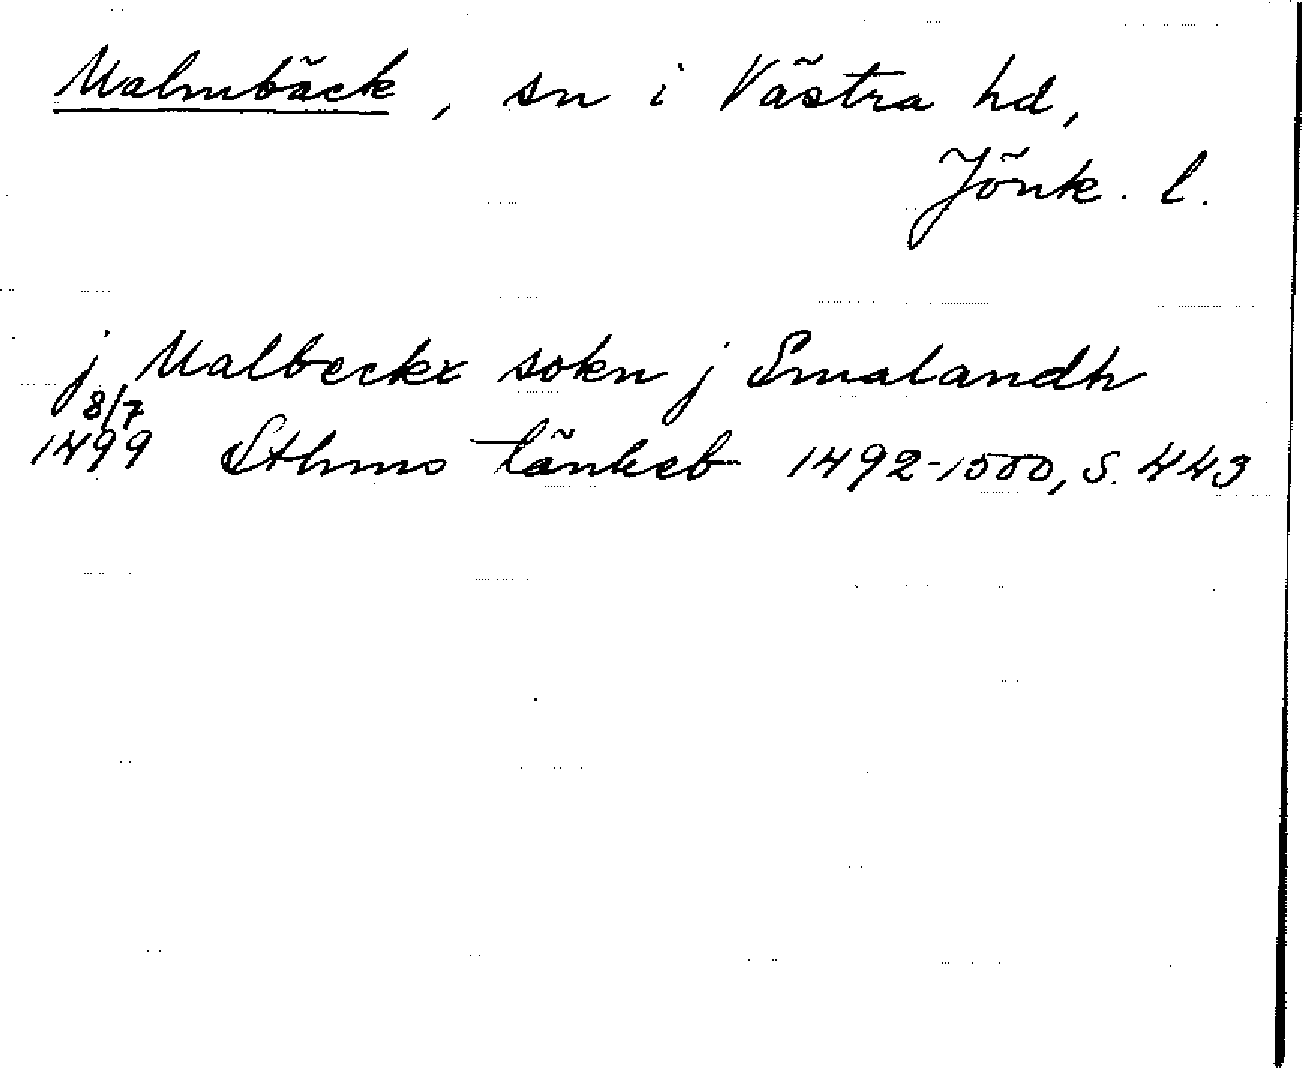 Malmbäck, sn i Västra hd,
Jönk. l.
j Malbeckx sokn j Smalandh
8/7
1499 Sthms tänkeb 1492-1500, S. 443